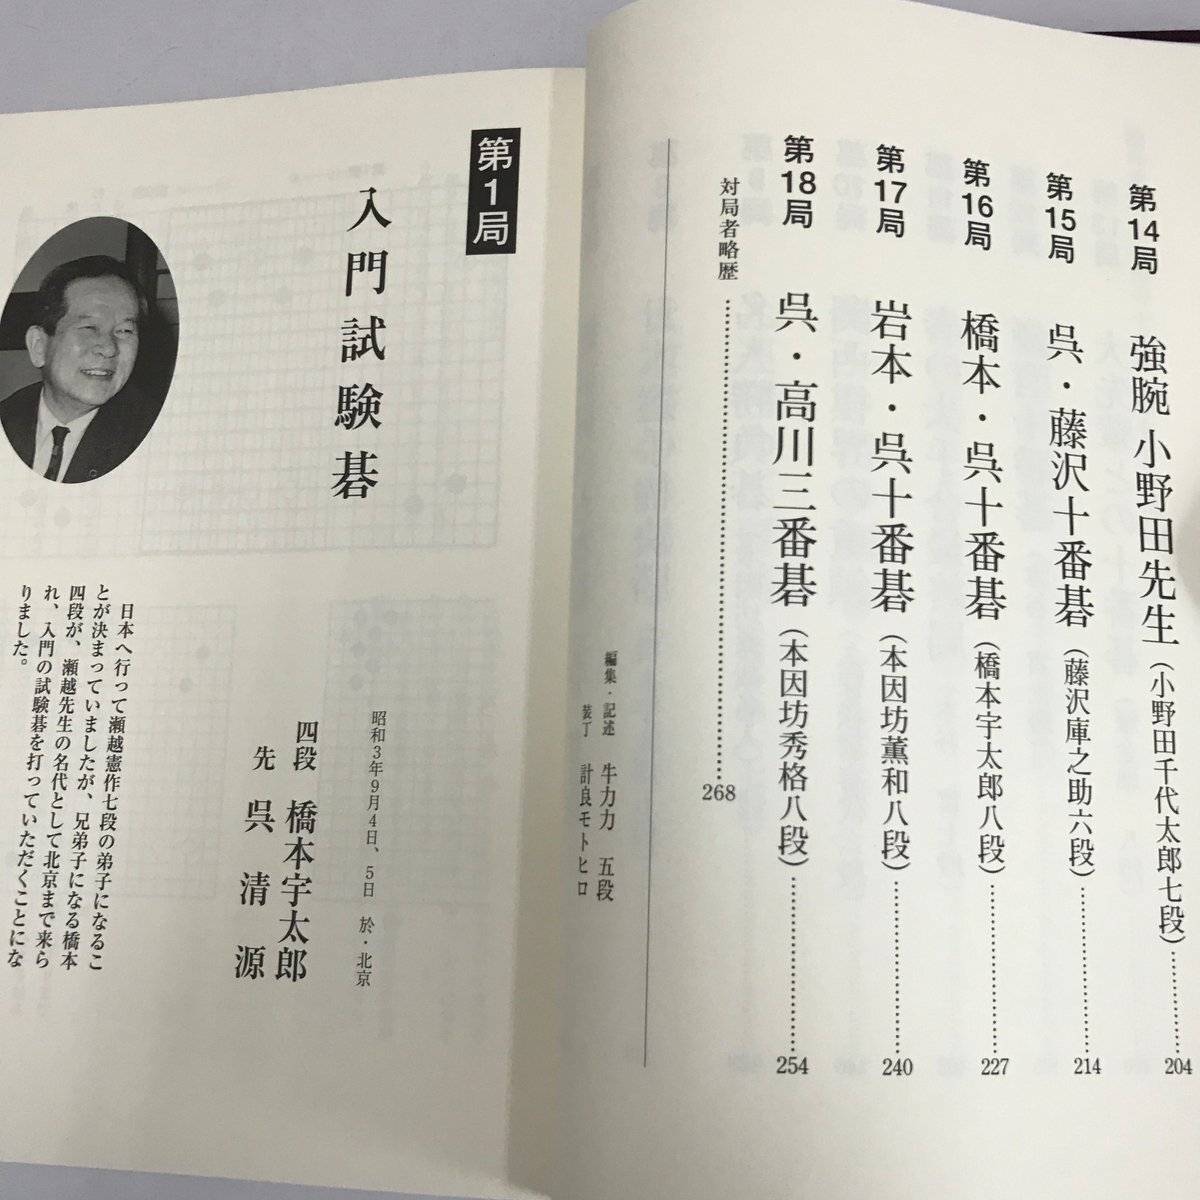 第14局 強腕 小野田先生（小野田千代太郎七段）……………204
第15局 呉・藤沢十番碁（藤沢庫之助六段）……………214
第16局 橋本・呉十番碁（橋本宇太郎八段）……………227
第17局 岩本・呉十番碁（本因坊薫和八段）……………240
第18局 呉・高川三番碁（本因坊秀格八段）……………254
対局者略歴……………268
編集・記述 牛力力 五段
装丁 計良モトヒロ
第1局
入門試験碁
昭和3年9月4日、5日 於・北京
四段 橋本宇太郎
先 呉清源
日本へ行って瀬越憲作七段の弟子になるこ
とが決まっていましたが、兄弟子になる橋本
四段が、瀬越先生の名代として北京まで来ら
れ、入門の試験碁を打っていただくことにな
りました。